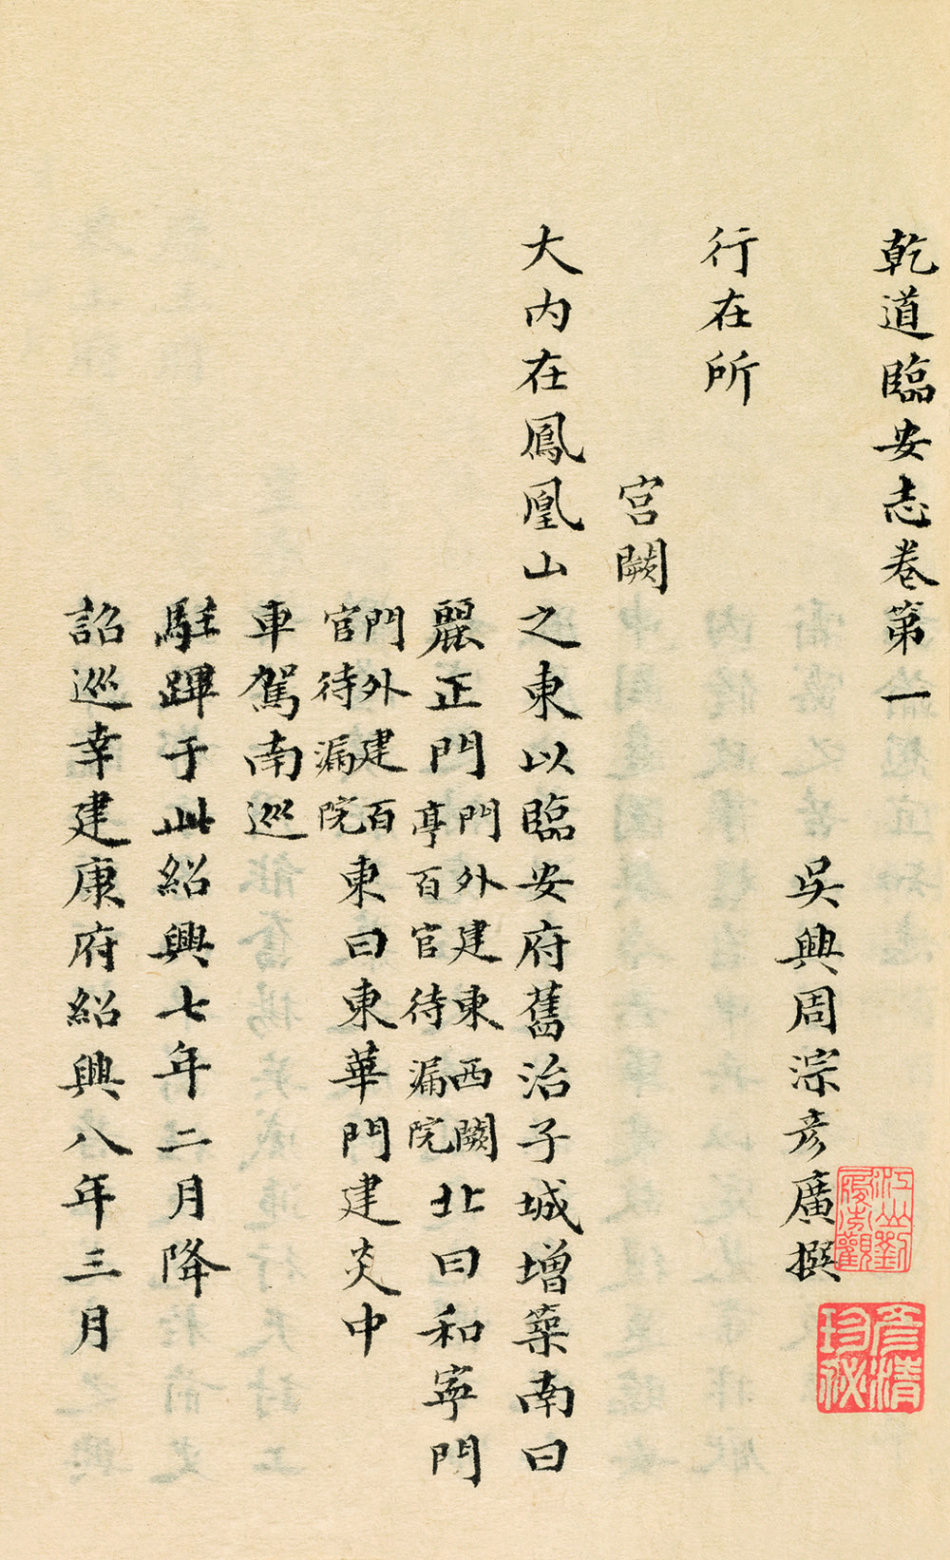 乾道臨安志卷第一
吳興周淙彥廣撰
行在所
宮闕
大內在鳳凰山之東以臨安府舊治子城增築南曰
麗正門門外建東西闕亭百官待漏院北曰和寧門
門外建百官待漏院東曰東華門建炎中
車駕南巡
駐蹕于此紹興七年二月降
詔巡幸建康府紹興八年三月
江山劉履芬觀
彥清珍秘